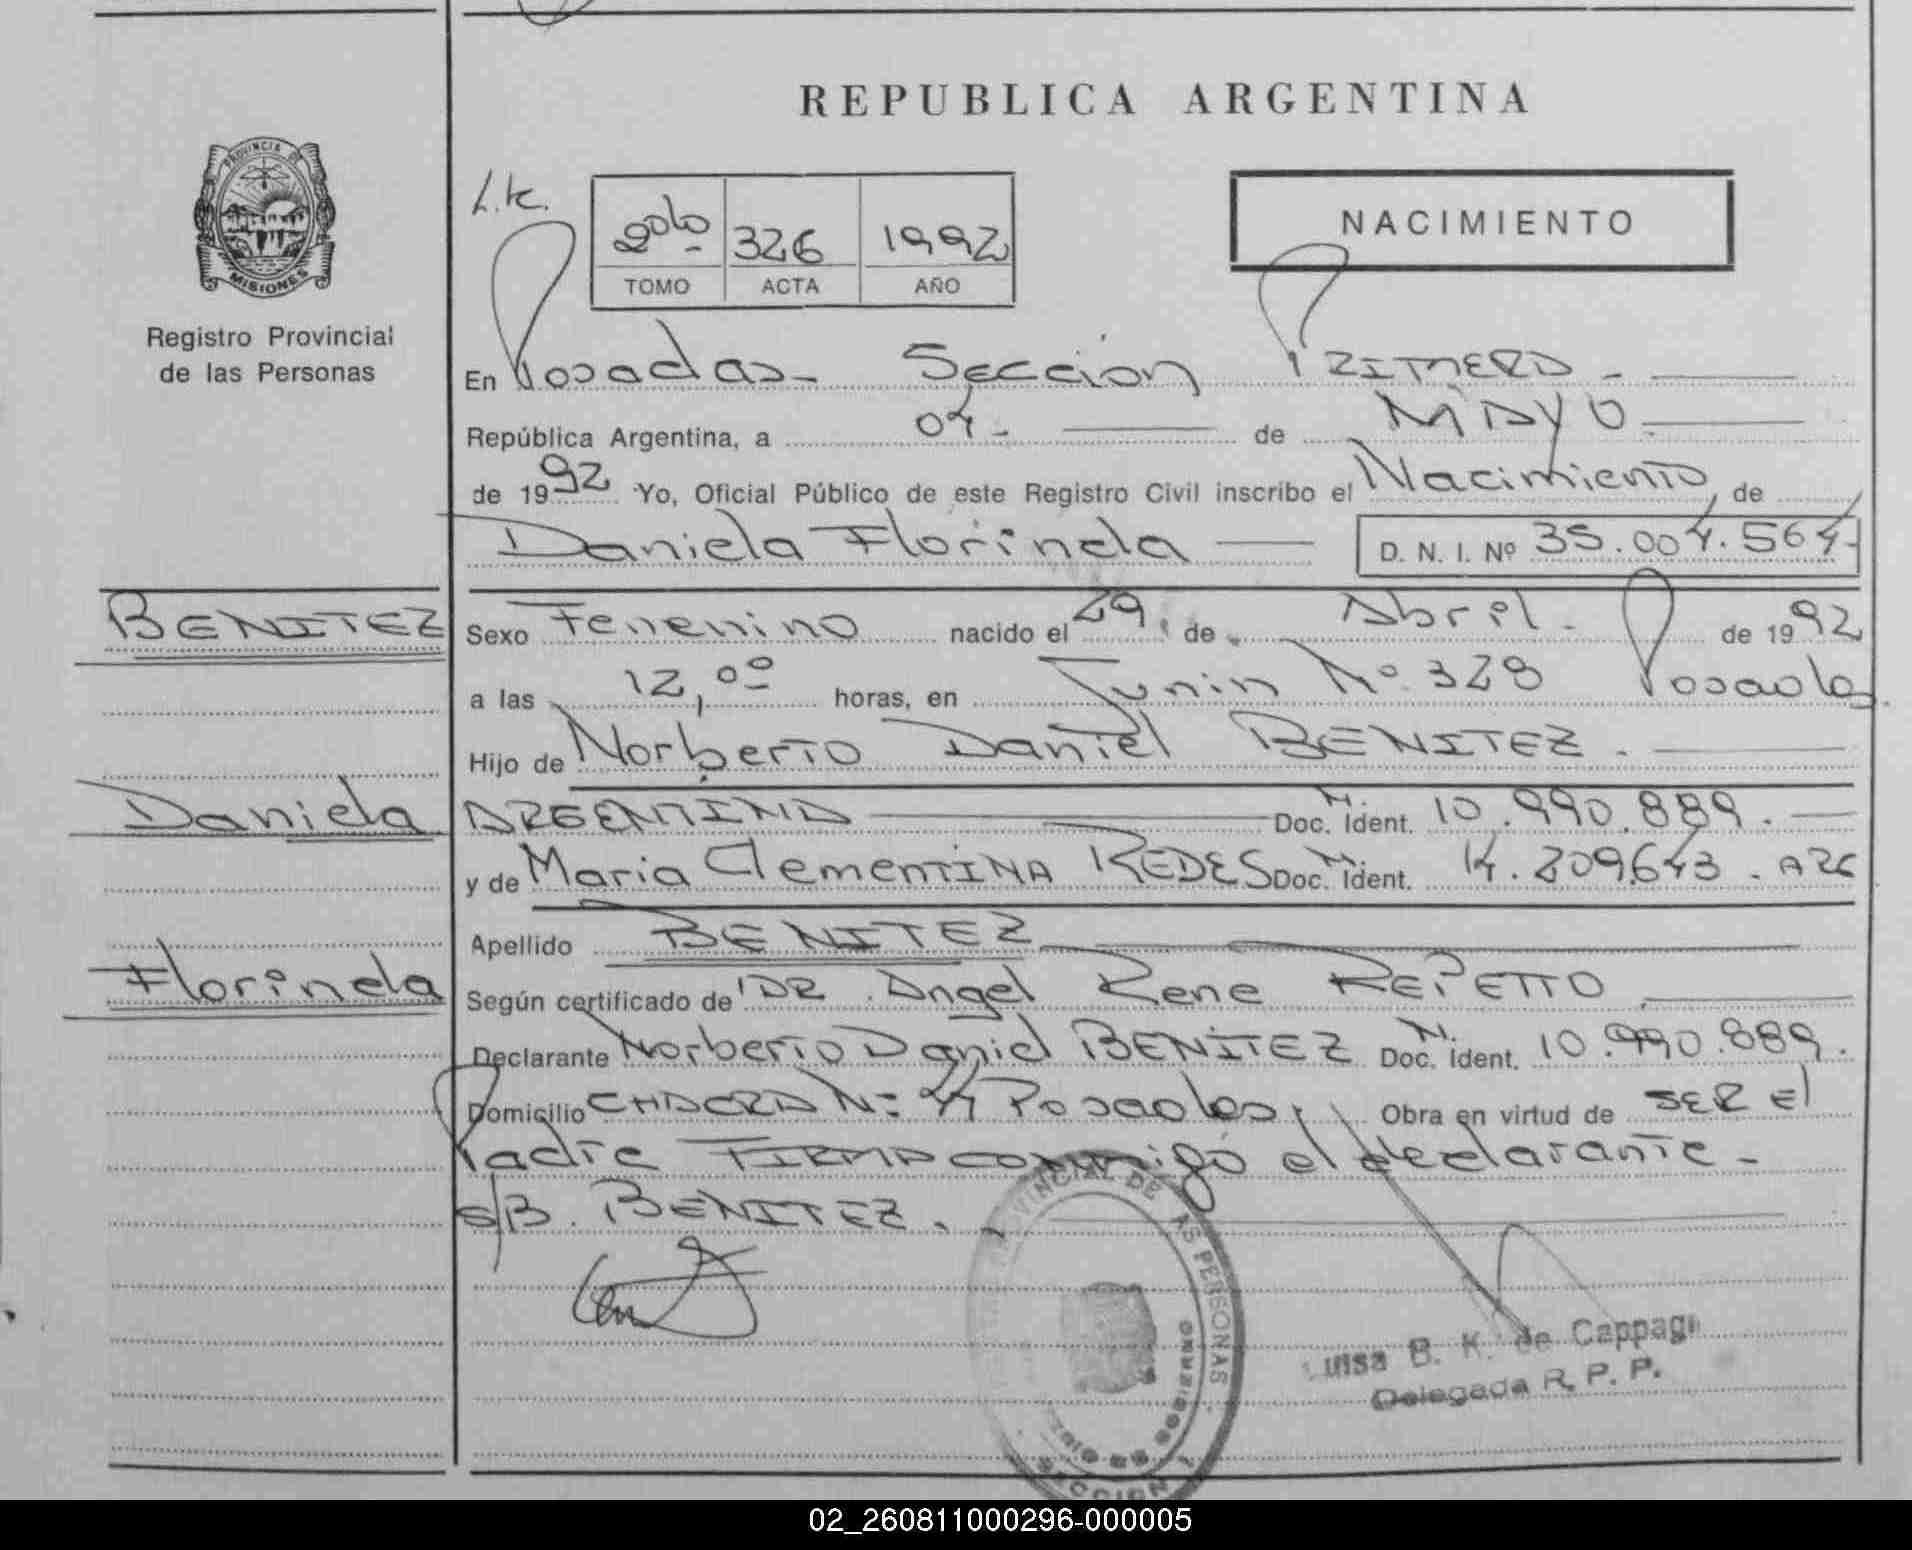 REPUBLICA ARGENTINA
PROVINCIA DE
MISIONES
Registro Provincial
de las Personas
L.K.
2do 326 1992
TOMO ACTA AÑO
NACIMIENTO
En Posadas - Sección PRIMERA -
República Argentina, a 04 - de MAYO
de 1992 Yo, Oficial Público de este Registro Civil inscribo el Nacimiento, de
Daniela Florinda D. N. I. Nº 35.004.564-
BENITEZ
Sexo Femenino nacido el 29 de Abril - de 1992
a las 12,00 horas, en Junin Nº 328 Posadas
Hijo de Norberto Daniel BENITEZ .
Daniela
ARGENTINA Doc. M. Ident. 10.990.889.
y de Maria Clementina REDES Doc. M. Ident. 14.209.643. ARG
Apellido BENITEZ
Florinda
Según certificado de DR. Angel Rene REPETTO
Declarante Norberto Daniel BENITEZ Doc. M. Ident. 10.990.889.
Domicilio CHACRA Nº 44 Posadas, Obra en virtud de SER El
Padre FIRMA conmigo el declarante -
S/B. BENITEZ.
PROVINCIAL DE LAS PERSONAS
SECCION 1
Luisa B. K. de Cappagi
Delegada R. P. P.
02_260811000296-000005